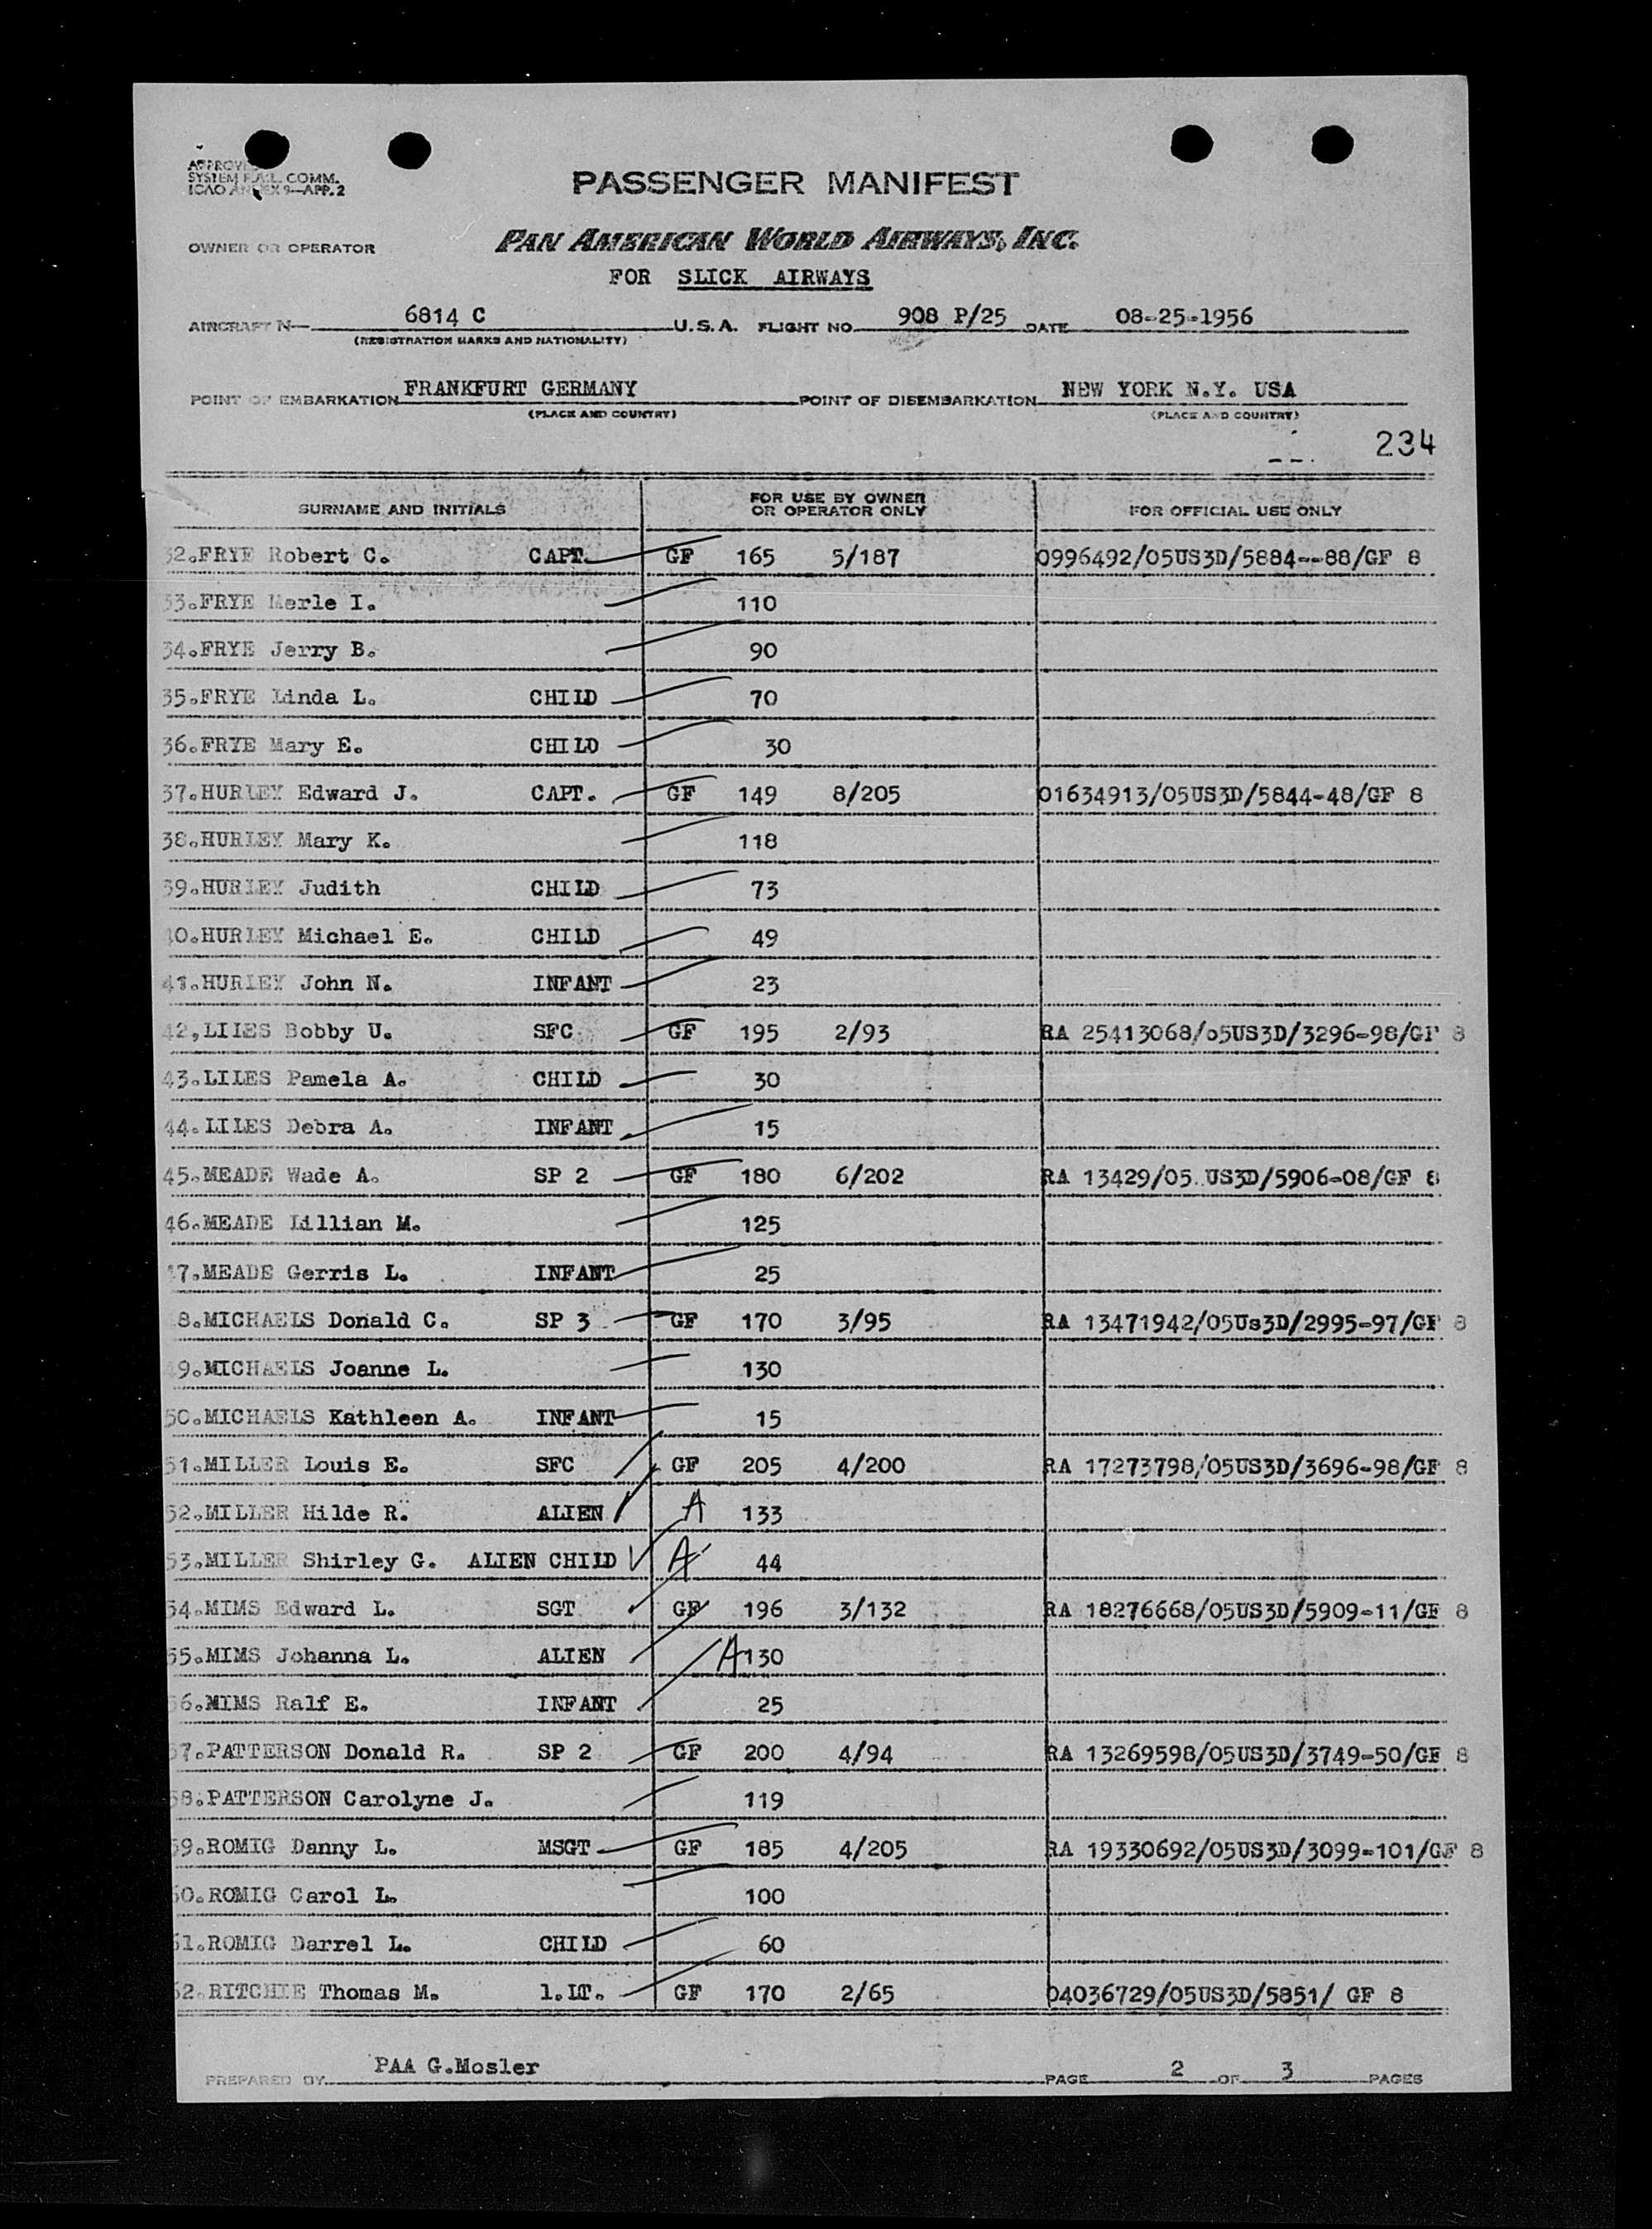 APPROVED
SYSTEM FAL. COMM.
ICAO ANNEX 9—APP. 2
PASSENGER MANIFEST
OWNER OR OPERATOR PAN AMERICAN WORLD AIRWAYS, INC.
FOR SLICK AIRWAYS
AIRCRAFT N— 6814 C U.S.A. FLIGHT NO. 908 P/25 DATE 08-25-1956
(REGISTRATION MARKS AND NATIONALITY)
POINT OF EMBARKATION FRANKFURT GERMANY POINT OF DISEMBARKATION NEW YORK N.Y. USA
(PLACE AND COUNTRY) (PLACE AND COUNTRY)
234
SURNAME AND INITIALS FOR USE BY OWNER OR OPERATOR ONLY FOR OFFICIAL USE ONLY
32.FRYE Robert C. CAPT. GF 165 5/187 0996492/05US3D/5884--88/GF 8
33.FRYE Merle I. 110
34.FRYE Jerry B. 90
35.FRYE Linda L. CHILD 70
36.FRYE Mary E. CHILD 30
37.HURLEY Edward J. CAPT. GF 149 8/205 01634913/05US3D/5844-48/GF 8
38.HURLEY Mary K. 118
39.HURLEY Judith CHILD 73
40.HURLEY Michael E. CHILD 49
41.HURLEY John N. INFANT 23
42,LILES Bobby U. SFC GF 195 2/93 RA 25413068/05US3D/3296-98/GF 8
43.LILES Pamela A. CHILD 30
44.LILES Debra A. INFANT 15
45.MEADE Wade A. SP 2 GF 180 6/202 RA 13429/05.US3D/5906-08/GF 8
46.MEADE Lillian M. 125
47.MEADE Gerris L. INFANT 25
48.MICHAELS Donald C. SP 3 GF 170 3/95 RA 13471942/05Us3D/2995-97/GF 8
49.MICHAELS Joanne L. 130
50.MICHAELS Kathleen A. INFANT 15
51.MILLER Louis E. SFC GF 205 4/200 RA 17273798/05US3D/3696-98/GF 8
52.MILLER Hilde R. ALIEN A 133
53.MILLER Shirley G. ALIEN CHILD A 44
54.MIMS Edward L. SGT GF 196 3/132 RA 18276668/05US3D/5909-11/GF 8
55.MIMS Johanna L. ALIEN A 130
56.MIMS Ralf E. INFANT 25
57.PATTERSON Donald R. SP 2 GF 200 4/94 RA 13269598/05US3D/3749-50/GF 8
58.PATTERSON Carolyne J. 119
59.ROMIG Danny L. MSGT GF 185 4/205 RA 19330692/05US3D/3099-101/GF 8
60.ROMIG Carol L. 100
61.ROMIG Darrel L. CHILD 60
62.RITCHIE Thomas M. 1.LT. GF 170 2/65 04036729/05US3D/5851/ GF 8
PREPARED BY PAA G.Mosler PAGE 2 OF 3 PAGES